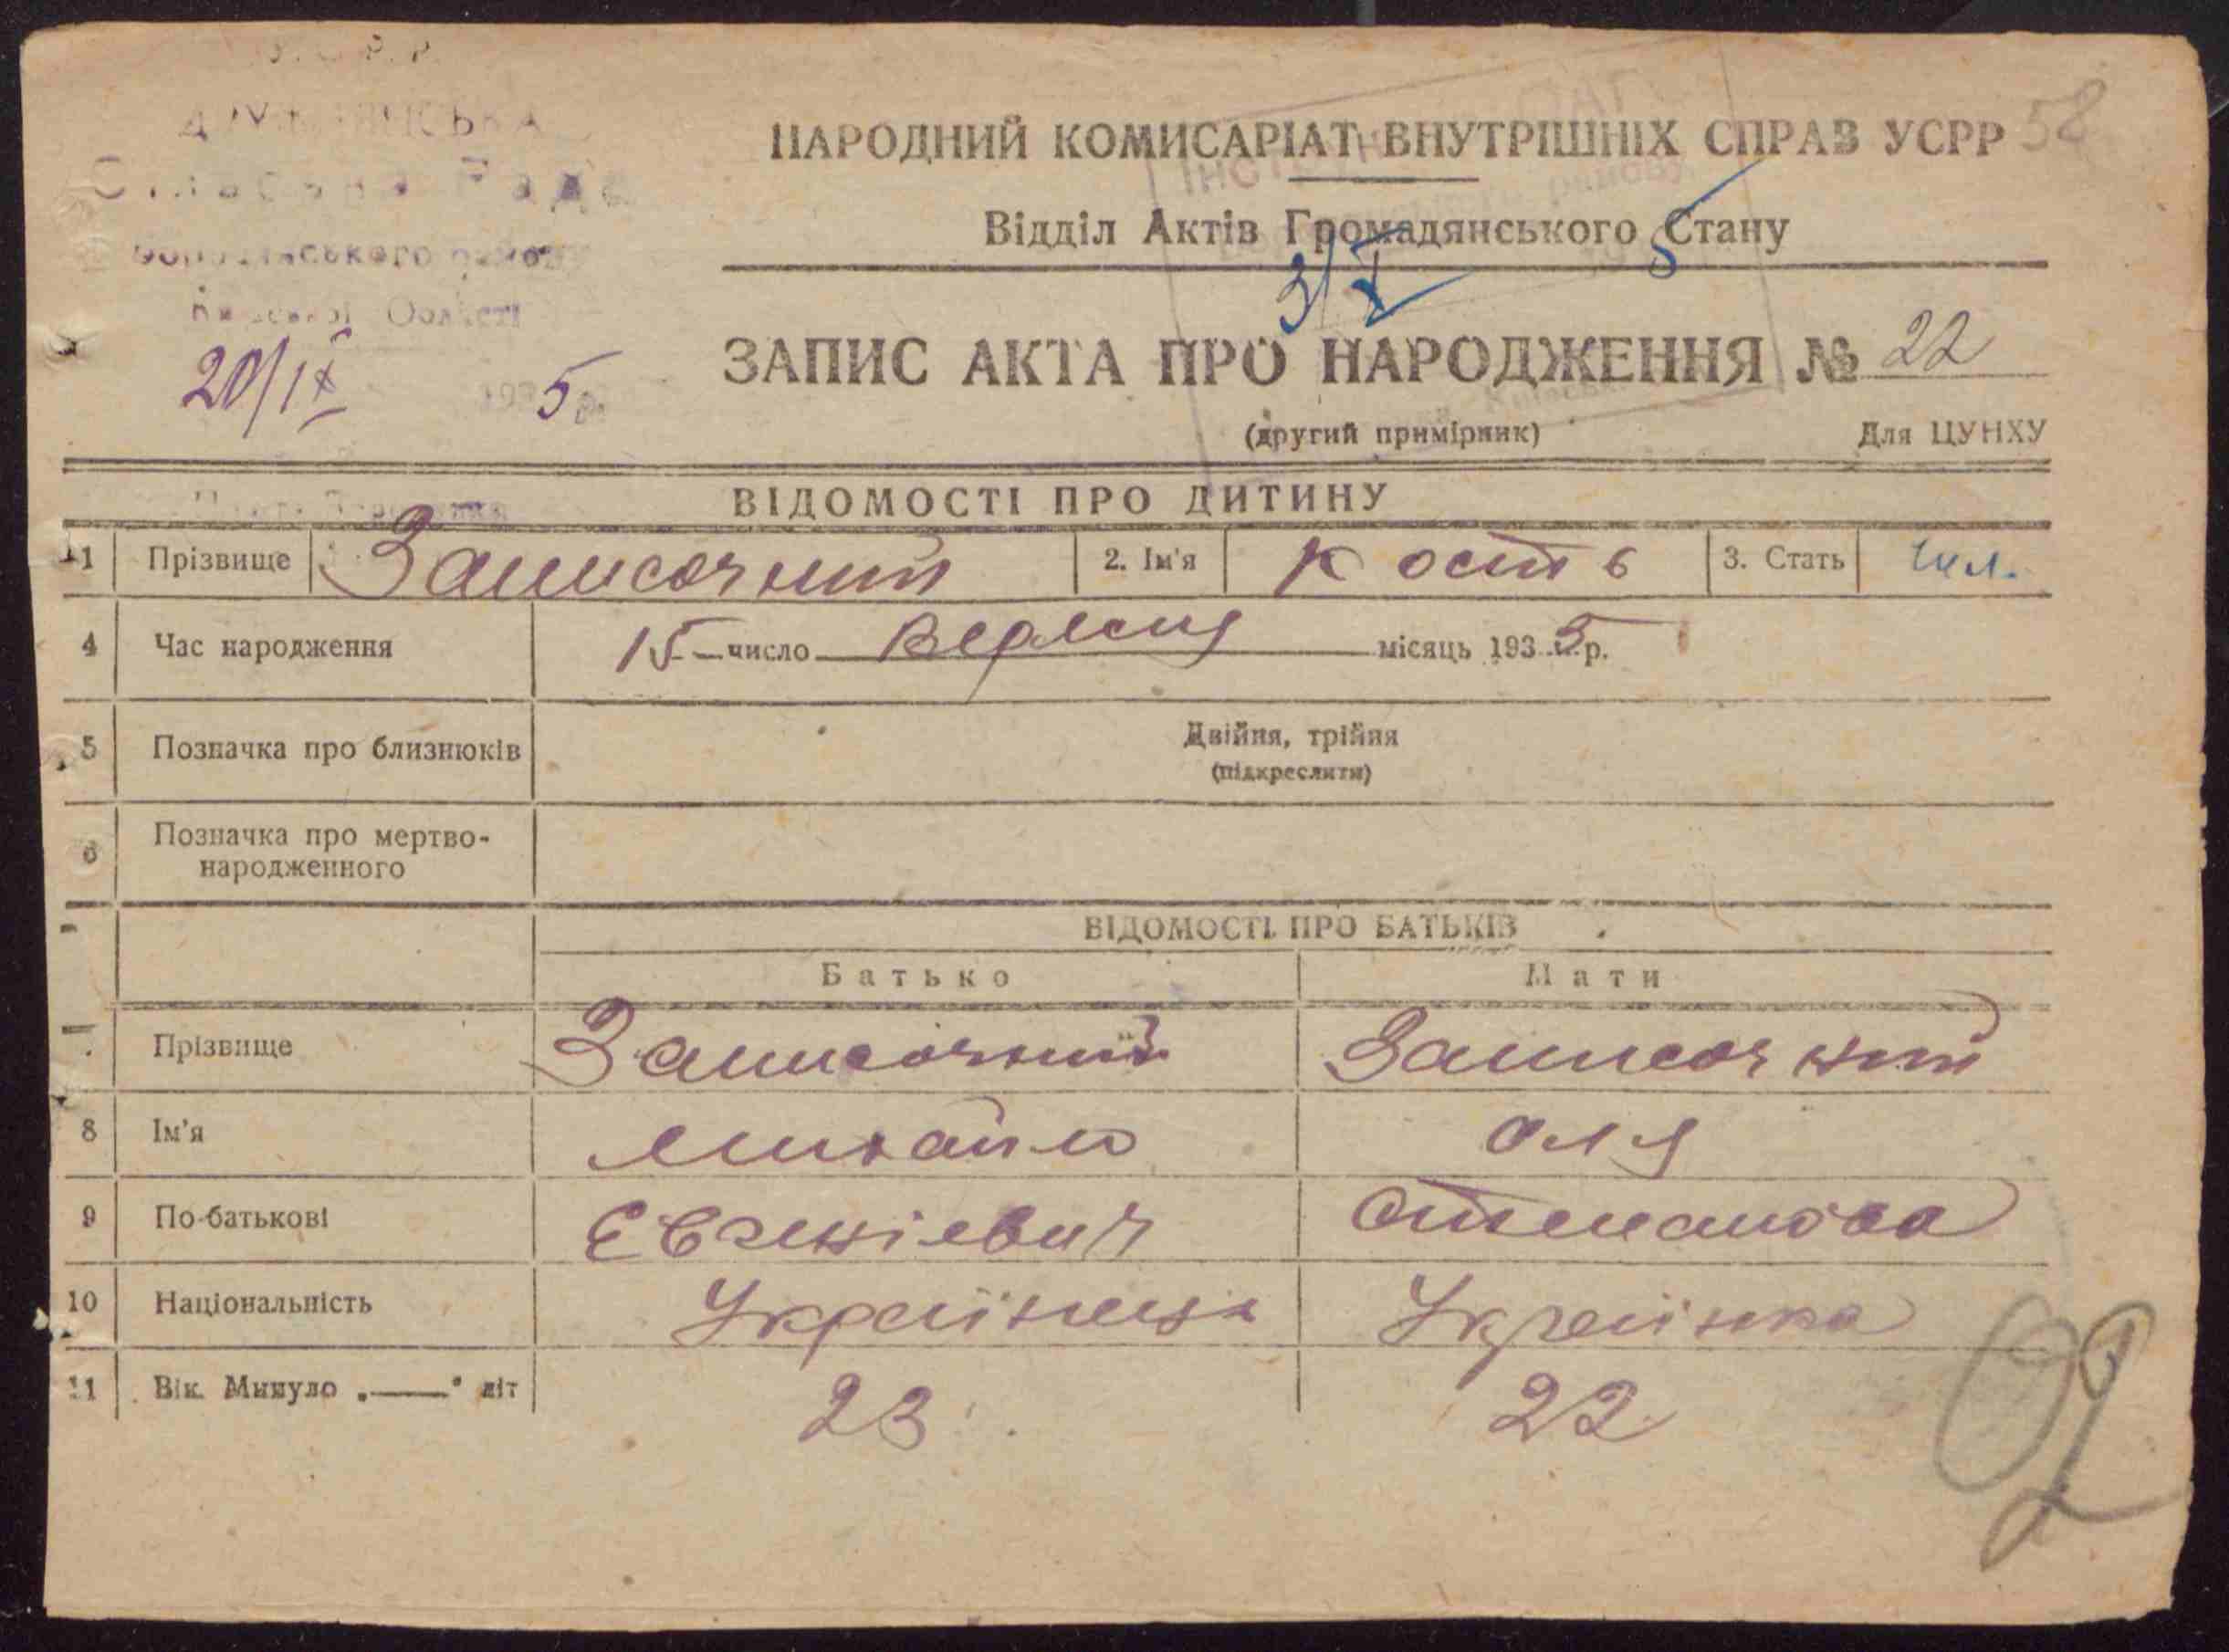 НАРОДНИЙ КОМИСАРІАТ ВНУТРІШНІХ СПРАВ УСРР
58
Відділ Актів Громадянського Стану
Сільська Рада
району
Київської Області
20/IX 1935 р.
3/X 5
ЗАПИС АКТА ПРО НАРОДЖЕННЯ № 22
(другий примірник)
Для ЦУНХУ
ВІДОМОСТІ ПРО ДИТИНУ
1 Прізвище Записочний 2. Ім'я Кость 3. Стать чол.
4 Час народження 15 число Вересня місяць 1935 р.
5 Позначка про близнюків Двійня, трійня
(підкреслити)
6 Позначка про мертво-
народженного
ВІДОМОСТІ ПРО БАТЬКІВ
Батько Мати
7 Прізвище Записочний Записочний
8 Ім'я Михайло Оля
9 По-батькові Евгенієвич Степанова
10 Національність Українець Українка
11 Вік. Минуло „——“ літ 23 22